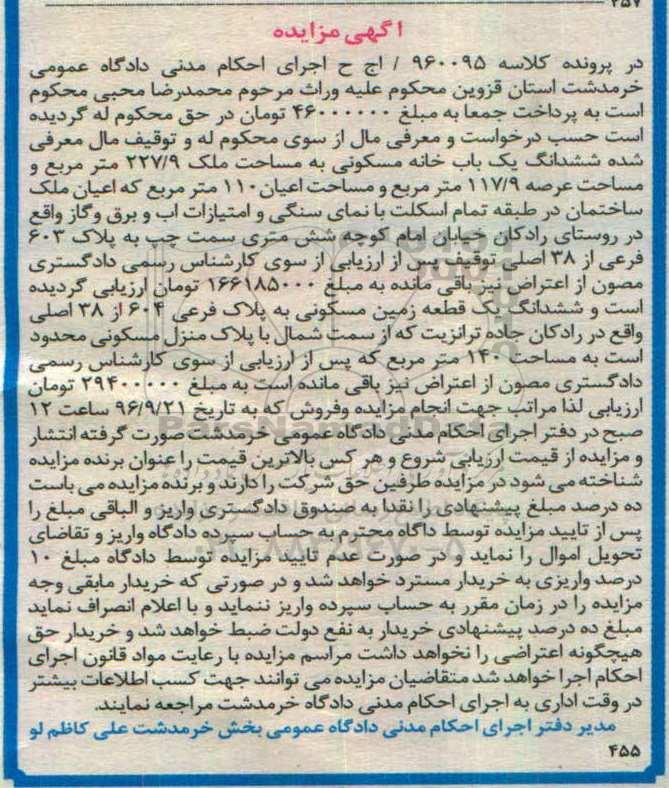 ۴۵۷
آگهی مزایده
در پرونده کلاسه ۹۶۰۰۹۵ / اج ح اجرای احکام مدنی دادگاه عمومی
خرمدشت استان قزوین محکوم علیه وراث مرحوم محمدرضا محبی محکوم
است به پرداخت جمعا به مبلغ ۴۶۰۰۰۰۰۰ تومان در حق محکوم له گردیده
است حسب درخواست و معرفی مال از سوی محکوم له و توقیف مال معرفی
شده ششدانگ یک باب خانه مسکونی به مساحت ملک ۲۲۷/۹ متر مربع و
مساحت عرصه ۱۱۷/۹ متر مربع و مساحت اعیان ۱۱۰ متر مربع که اعیان ملک
ساختمان در طبقه تمام اسکلت با نمای سنگی و امتیازات اب و برق وگاز واقع
در روستای رادکان خیابان امام کوچه شش متری سمت چپ به پلاک ۶۰۳
فرعی از ۳۸ اصلی توقیف پس از ارزیابی از سوی کارشناس رسمی دادگستری
مصون از اعتراض نیز باقی مانده به مبلغ ۱۶۶۱۸۵۰۰۰ تومان ارزیابی گردیده
است و ششدانگ یک قطعه زمین مسکونی به پلاک فرعی ۶۰۴ از ۳۸ اصلی
واقع در رادکان جاده ترانزیت که از سمت شمال با پلاک منزل مسکونی محدود
است به مساحت ۱۴۰ متر مربع که پس از ارزیابی از سوی کارشناس رسمی
دادگستری مصون از اعتراض نیز باقی مانده است به مبلغ ۲۹۴۰۰۰۰۰ تومان
ارزیابی لذا مراتب جهت انجام مزایده وفروش که به تاریخ ۹۶/۹/۲۱ ساعت ۱۲
صبح در دفتر اجرای احکام مدنی دادگاه عمومی خرمدشت صورت گرفته انتشار
و مزایده از قیمت ارزیابی شروع و هر کس بالاترین قیمت را عنوان برنده مزایده
شناخته می شود در مزایده طرفین حق شرکت را دارند و برنده مزایده می باست
ده درصد مبلغ پیشنهادی را نقدا به صندوق دادگستری واریز و الباقی مبلغ را
پس از تایید مزایده توسط داگاه محترم به حساب سپرده دادگاه واریز و تقاضای
تحویل اموال را نماید و در صورت عدم تایید مزایده توسط دادگاه مبلغ ۱۰
درصد واریزی به خریدار مسترد خواهد شد و در صورتی که خریدار مابقی وجه
مزایده را در زمان مقرر به حساب سپرده واریز ننماید و با اعلام انصراف نماید
مبلغ ده درصد پیشنهادی خریدار به نفع دولت ضبط خواهد شد و خریدار حق
هیچگونه اعتراضی را نخواهد داشت مراسم مزایده با رعایت مواد قانون اجرای
احکام اجرا خواهد شد متقاضیان مزایده می توانند جهت کسب اطلاعات بیشتر
در وقت اداری به اجرای احکام مدنی دادگاه خرمدشت مراجعه نمایند.
مدیر دفتر اجرای احکام مدنی دادگاه عمومی بخش خرمدشت علی کاظم لو
۴۵۵